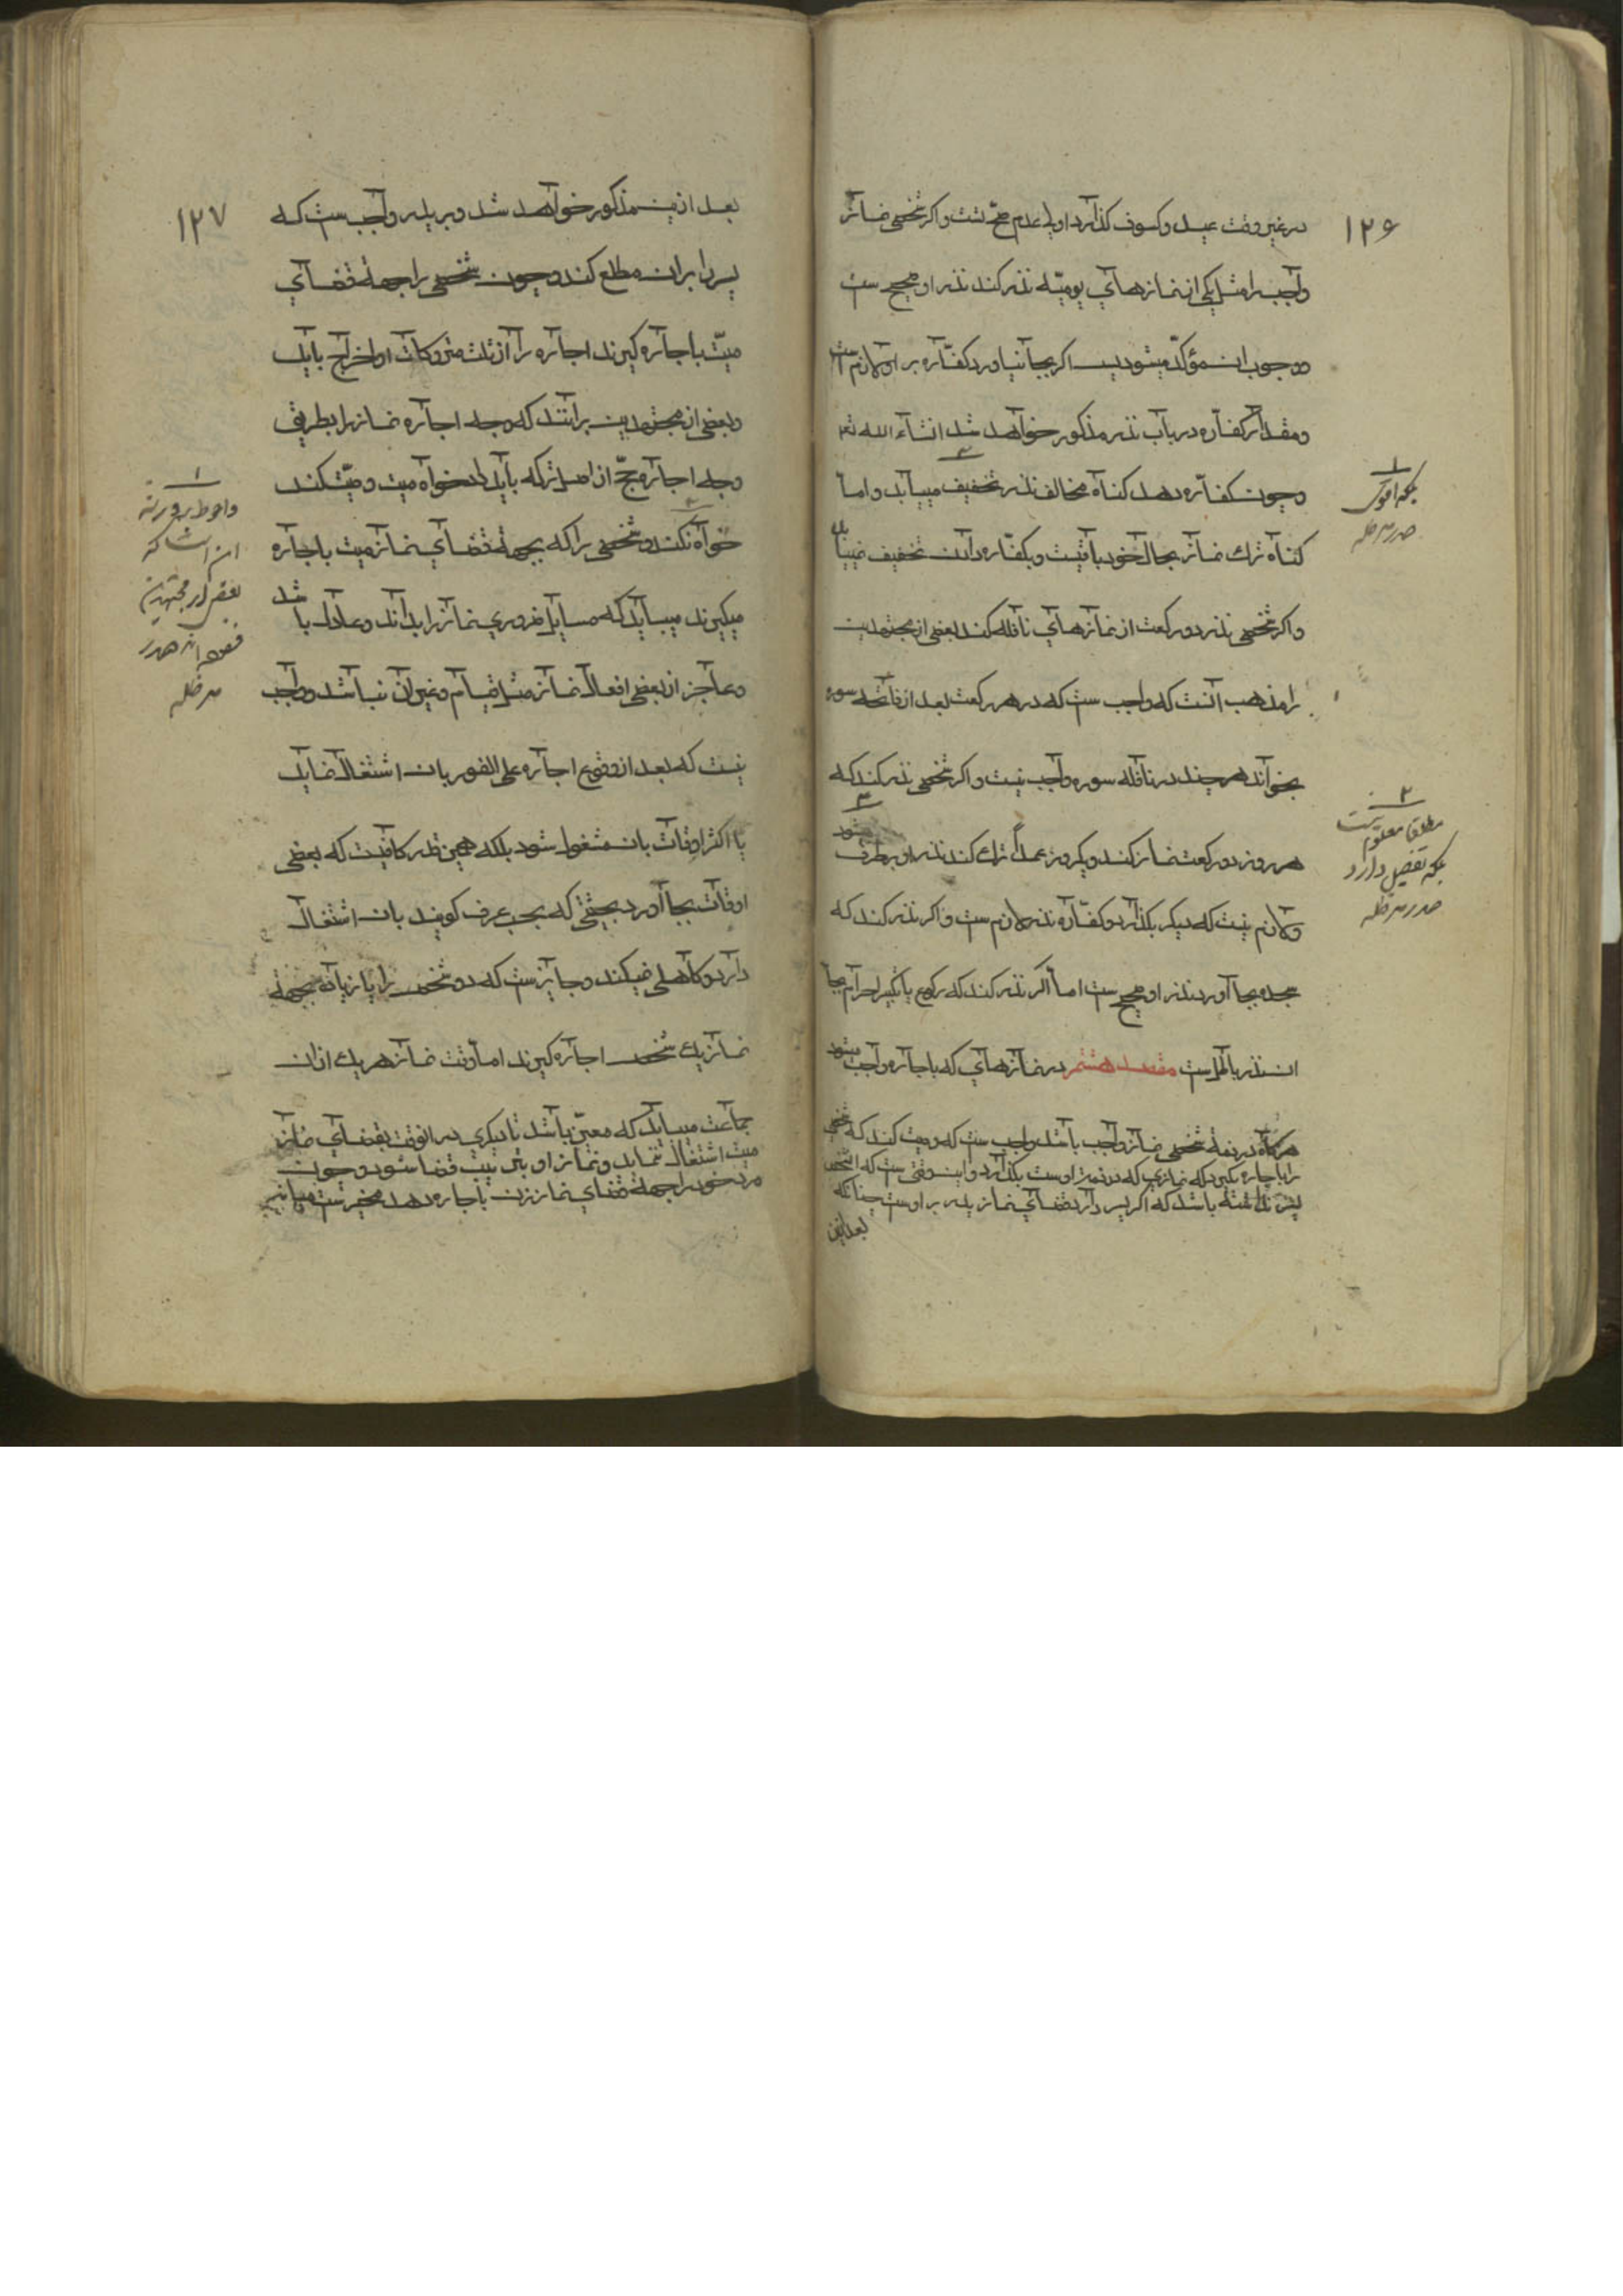 ۱۲۶
در غیر وقت عید و کسوف کذارد اولی عدم صحّتست و اکر شخصی نماز
واجب را مثل یکی از نمازهای یومیّه نذر کند نذر او صحیح ست
و وجوب ان مؤکّد میشود پس اکر بجا نیاورد کفّاره بر او لازم است
و مقدار کفاره در باب نذر مذکور خواهد شد انشاء الله تع
و چون کفاره دهد کناه مخالف نذر تخفیف مییابد و اما
کناه ترک نماز بحال خود باقیست و بکفّاره دادن تخفیف نمییابد
و اکر شخصی نذر دو رکعت از نمازهای نافله کند بعضی از مجتهدین
را مذهب آنست که واجب ست که در هر رکعت بعد از فاتحه سوره
بخواند هر چند در نافله سوره واجب نیست و اکر شخصی نذر کند که
هر روز دو رکعت نماز کند و یکروز عمداً ترک کند نذر او برطرف میشود
و لازم نیست که دیکر بکذارد و کفّاره نذر لازم ست و اکر نذر کند که
سجده بجا آورد نذر او صحیح ست اما اکر نذر کند که رکوع یا تکبیر احرام بجا
ان نذر باطل ست مقصد هشتم در نمازهای که باجاره واجب میشود
هرکاه در ذمهٔ شخصی نماز واجب باشد واجب ست که وصیت کند که شخصی
را باجاره بکیرد که نمازی که در ذمهٔ اوست بکذارد و این وقتی ست که انشخص
پسر نداشته باشد که اکر پسر دارد قضای نماز پدر بر اوست چنانکه
بعد ازین
۱
بلکه اقوی
صدر مد ظله
۲
مطلقا معلوم نیست
بلکه تفصیل دارد
صدر مد ظله
۱۲۷
بعد ازین مذکور خواهد شد و بر پدر واجب ست که
پسر را بران مطلع کند و چون شخصی را بجههٔ قضای
میّت باجاره کیرند اجاره را از ثلث متروکات او اخراج باید
و بعضی از مجتهدین برانند که وجه اجاره نماز را بطریق
وجه اجاره حجّ از اصل ترکه باید داد خواه میت وصیّت کند
خواه نکند و شخصی را که بجههٔ قضای نماز میت باجاره
میکیرند میباید که مسایل ضروری نماز را بداند و عادل باشد
و عاجز از بعضی افعال نماز مثل قیام و غیر آن نباشد و واجب
نیست که بعد از وقوع اجاره علی الفور بان اشتغال نماید
یا اکثر اوقات بان مشغول شود بلکه همین قدر کافیست که بعضی
اوقات بجا آورد بحیثیتی که بحسب عرف کویند بان اشتغال
دارد و کاهلی نمیکند و جایز ست که دو شخص را یا زیاده بجههٔ
نماز یک شخص اجاره کیرند اما وقت نماز هر یک ازان
جماعت میباید که معیّن باشد تا دیکری در انوقت بقضای نماز
میت اشتغال ننماید و نماز او بترتیب قضا شود و چون
مرد خود را بجههٔ قضای نماز زن باجاره دهد مخیر ست میانه
۱
و احوط بر ورثه
این است که
بعضی از مجتهدین
فرموده اند صدر
مد ظله